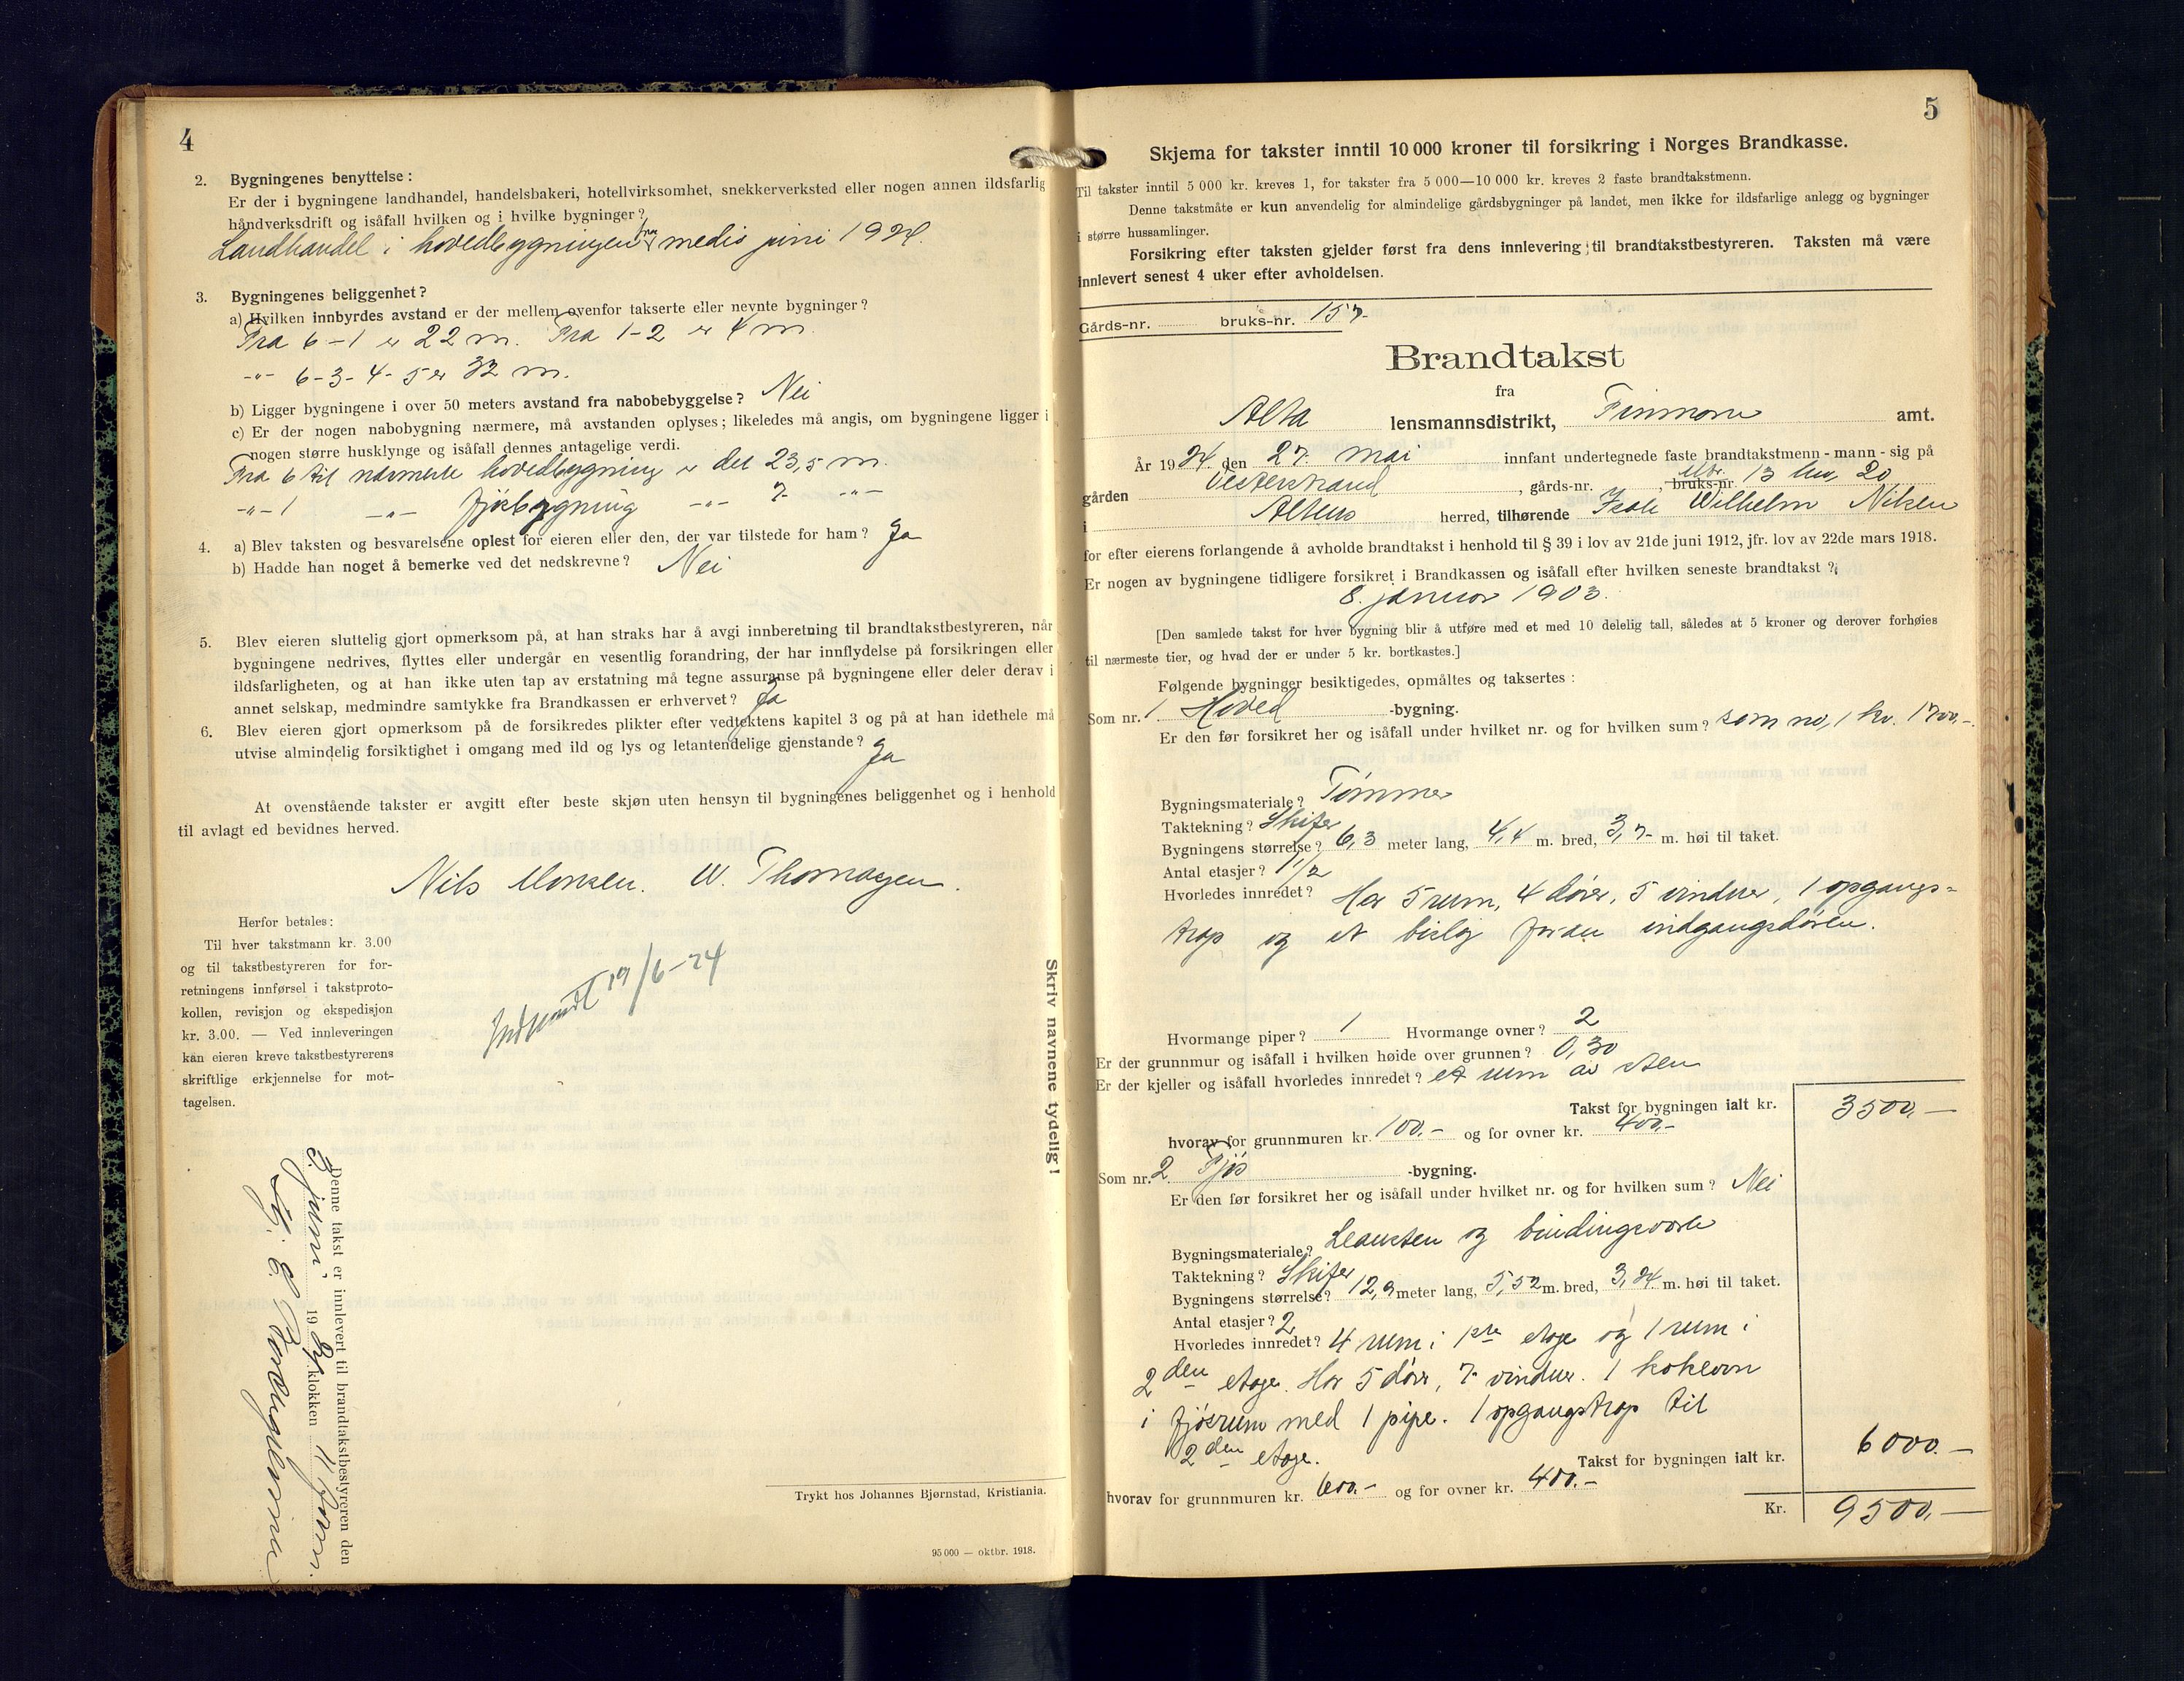 4
2. Bygningenes benyttelse:
Er der i bygningene landhandel, handelsbakeri, hotellvirksomhet, snekkerverksted eller nogen annen ildsfarlig
håndverksdrift og isåfall hvilken og i hvilke bygninger?
Landhandel i hovedbygningen fra medio juni 1924.
3. Bygningenes beliggenhet?
a) Hvilken innbyrdes avstand er der mellem ovenfor takserte eller nevnte bygninger?
Fra 6-1 er 22 m. Fra 1-2 er 4 m.
-"- 6-3-4-5 er 32 m.
b) Ligger bygningene i over 50 meters avstand fra nabobebyggelse? Nei
c) Er der nogen nabobygning nærmere, må avstanden oplyses; likeledes må angis, om bygningene ligger i
nogen større husklynge og isåfall dennes antagelige verdi.
Fra 6 til nærmeste hovedbygning er det 23,5 m.
-"- 1 -"- fjösbygning -"- 7 -"-
4. a) Blev taksten og besvarelsene oplest for eieren eller den, der var tilstede for ham? Ja
b) Hadde han noget å bemerke ved det nedskrevne? Nei
5. Blev eieren sluttelig gjort opmerksom på, at han straks har å avgi innberetning til brandtakstbestyreren, når
bygningene nedrives, flyttes eller undergår en vesentlig forandring, der har innflydelse på forsikringen eller
ildsfarligheten, og at han ikke uten tap av erstatning må tegne assuranse på bygningene eller deler derav i
annet selskap, medmindre samtykke fra Brandkassen er erhvervet? Ja
6. Blev eieren gjort opmerksom på de forsikredes plikter efter vedtektens kapitel 3 og på at han idethele må
utvise almindelig forsiktighet i omgang med ild og lys og letantendelige gjenstande? Ja
At ovenstående takster er avgitt efter beste skjøn uten hensyn til bygningenes beliggenhet og i henhold
til avlagt ed bevidnes herved.
Nils Monsen. W. Thomasen.
Herfor betales:
Til hver takstmann kr. 3.00
og til takstbestyreren for for-
retningens innførsel i takstproto-
kollen, revisjon og ekspedisjon
kr. 3.00. — Ved innleveringen
kan eieren kreve takstbestyrerens
skriftlige erkjennelse for mot-
tagelsen.
Indsendt 19/6-24
Denne takst er innlevert til brandtakstbestyreren den
3. juni 1924 klokken 11 form.
Skriv navnene tydelig!
Trykt hos Johannes Bjørnstad, Kristiania.
95 000 — oktbr. 1918.
5
Skjema for takster inntil 10 000 kroner til forsikring i Norges Brandkasse.
Til takster inntil 5 000 kr. kreves 1, for takster fra 5 000—10 000 kr. kreves 2 faste brandtakstmenn.
Denne takstmåte er kun anvendelig for almindelige gårdsbygninger på landet, men ikke for ildsfarlige anlegg og bygninger
i større hussamlinger.
Forsikring efter taksten gjelder først fra dens innlevering til brandtakstbestyreren. Taksten må være
innlevert senest 4 uker efter avholdelsen.
Gårds-nr. bruks-nr. 157
Brandtakst
fra
Alta lensmannsdistrikt, Finmark amt.
År 1924 den 27. mai innfant undertegnede faste brandtakstmenn - mann - sig på
gården Vesterstrand, gårds-nr. , bruks-nr. Mtr. 13 lnr. 20
i Altens herred, tilhørende Isak Wilhelm Nilsen
for efter eierens forlangende å avholde brandtakst i henhold til § 39 i lov av 21de juni 1912, jfr. lov av 22de mars 1918.
Er nogen av bygningene tidligere forsikret i Brandkassen og isåfall efter hvilken seneste brandtakst?
8. januar 1903.
[Den samlede takst for hver bygning blir å utføre med et med 10 delelig tall, således at 5 kroner og derover forhøies
til nærmeste tier, og hvad der er under 5 kr. bortkastes.]
Følgende bygninger besiktigedes, opmåltes og taksertes:
Som nr. 1 Hoved -bygning.
Er den før forsikret her og isåfall under hvilket nr. og for hvilken sum? som no, 1 kr. 1700,-
Bygningsmateriale? Tømmer
Taktekning? Skifer
Bygningens størrelse? 6,3 meter lang, 4,4 m. bred, 3,7 m. høi til taket.
Antal etasjer? 1 1/2
Hvorledes innredet? Har 5 rum, 4 dører, 5 vinduer, 1 opgangs-
trap og et bislag foran indgangsdøren.
Hvormange piper? 1 Hvormange ovner? 2
Er der grunnmur og isåfall i hvilken høide over grunnen? 0,30
Er der kjeller og isåfall hvorledes innredet? et rum av sten
Takst for bygningen ialt kr. 3500,-
hvorav for grunnmuren kr. 100.- og for ovner kr. 400.-
Som nr. 2. Fjös -bygning.
Er den før forsikret her og isåfall under hvilket nr. og for hvilken sum? Nei
Bygningsmateriale? og bindingsverk
Taktekning? Skifer
Bygningens størrelse? 12,9 meter lang, 5,52 m. bred, 3,24 m. høi til taket.
Antal etasjer? 2
Hvorledes innredet? 4 rum i 1ste etage og 1 rum i
2den etage. Har 5 dører, 7 vinduer. 1 kokeovn
i fjösrum med 1 pipe. 1 opgangstrap til
2den etage.
Takst for bygningen ialt kr. 6000.-
hvorav for grunnmuren kr. 600.- og for ovner kr. 400.-
Kr. 9500,-